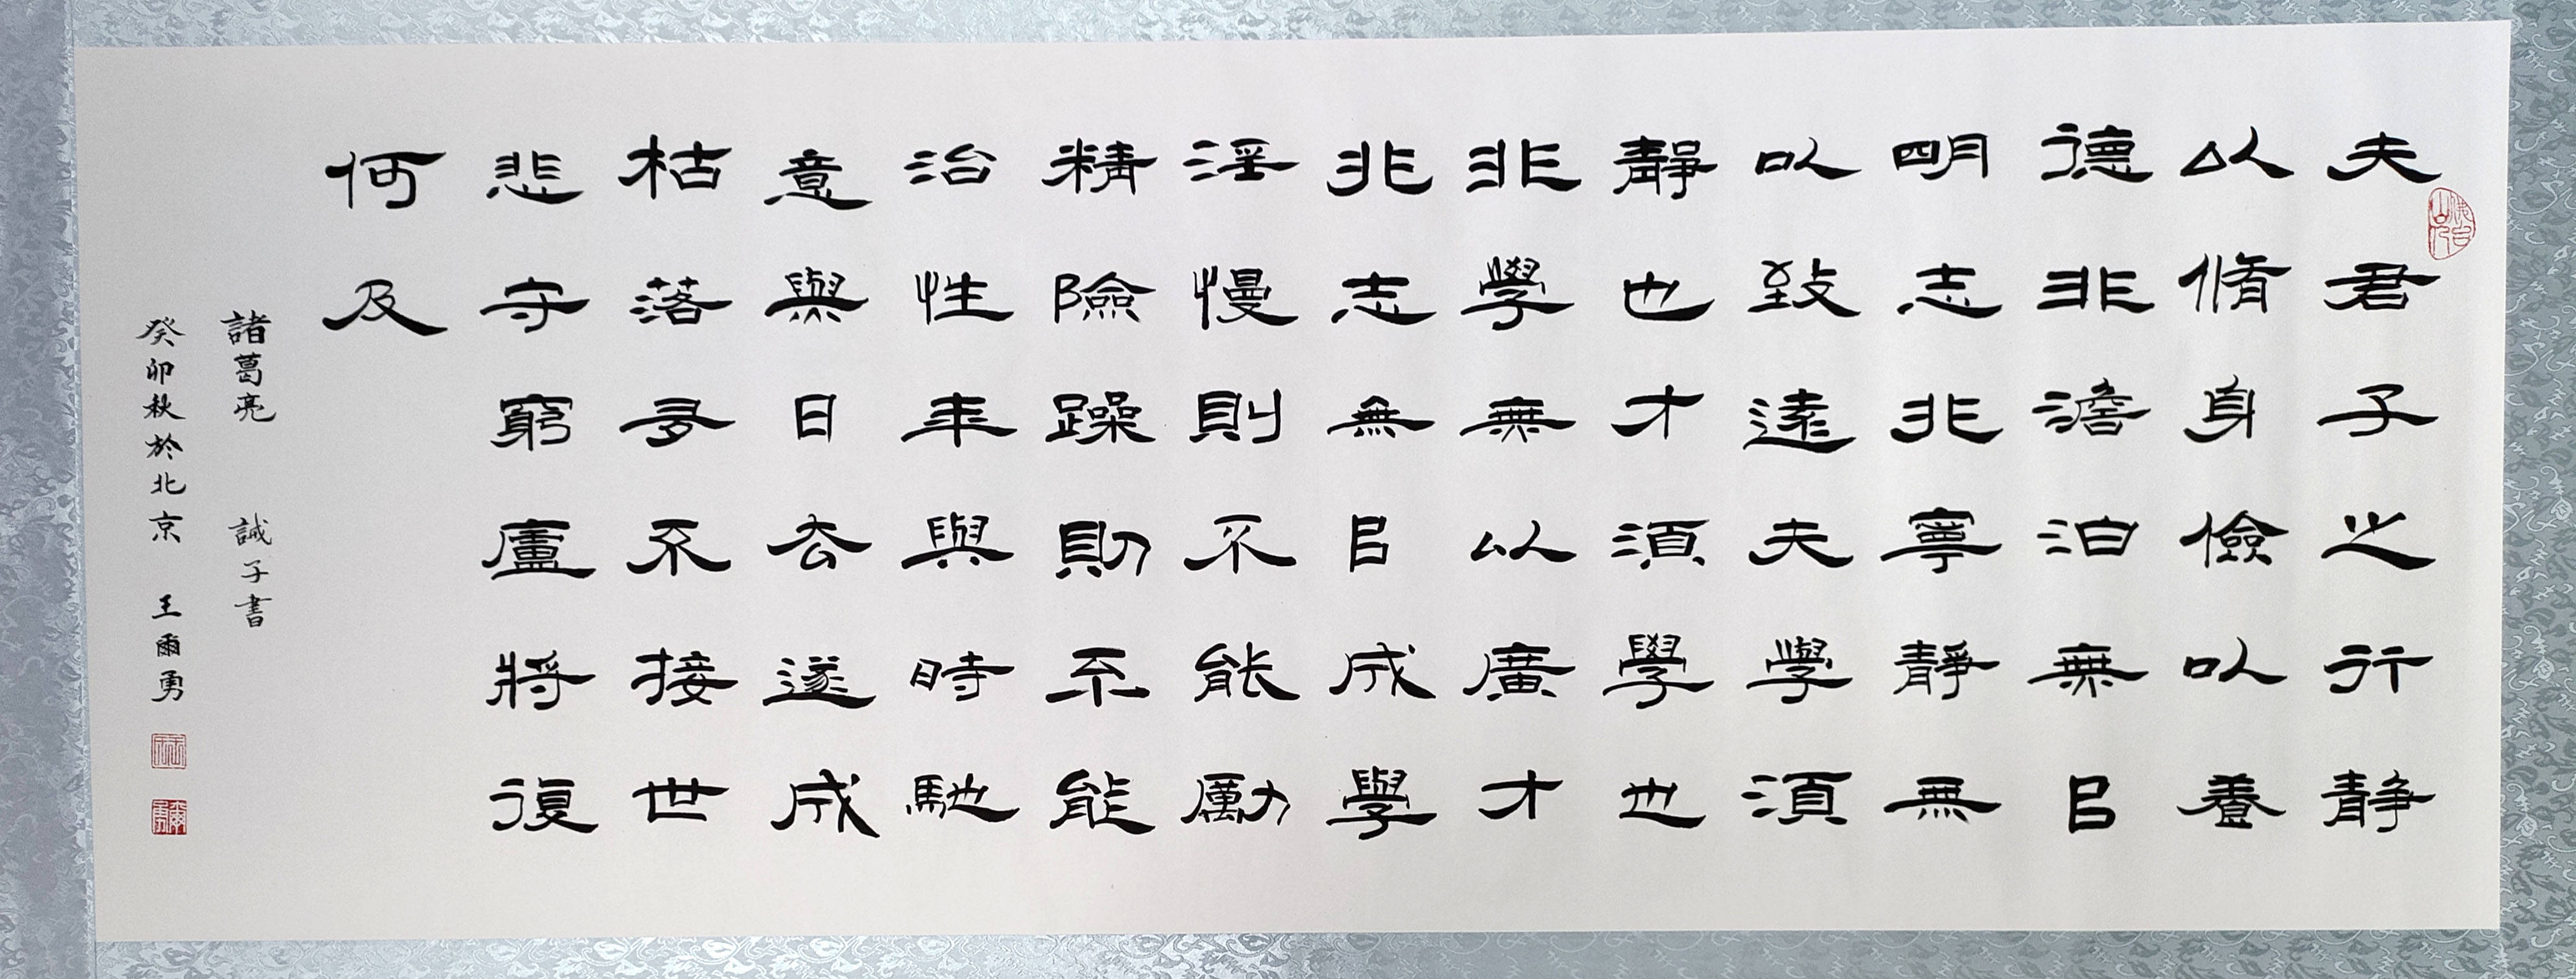 夫君子之行静
以脩身儉以養
德非澹泊無㠯
明志非寧靜無
以致遠夫學須
靜也才須學也
非學無以廣才
非志無㠯成學
淫慢則不能勵
精險躁則不能
治性年與時馳
意與日去遂成
枯落多不接世
悲守窮盧將復
何及
諸葛亮 誡子書
癸卯秋於北京 王爾勇
爾勇